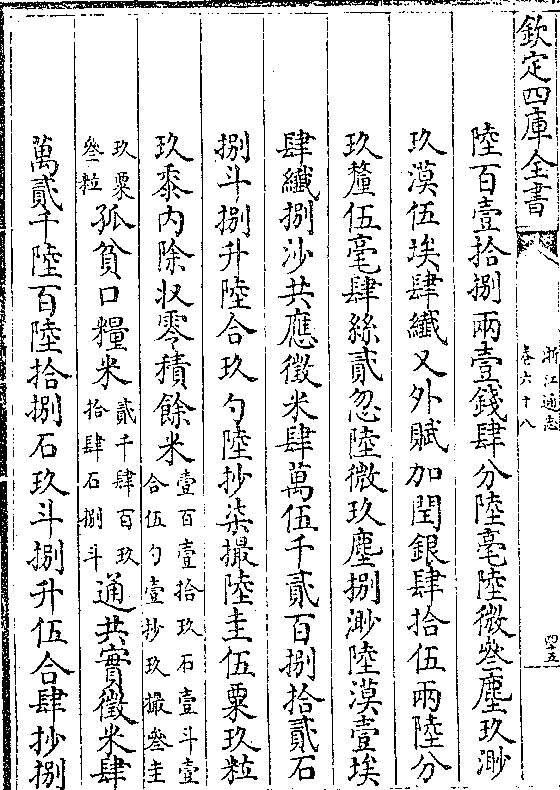 欽定四庫全書
浙江通志
卷六十八
四十五
陸百壹拾捌兩壹錢肆分陸毫陸微叄塵玖渺
玖漠伍埃肆纖又外賦加閏銀肆拾伍兩陸分
玖釐伍毫肆絲貳忽陸微玖塵捌渺陸漠壹埃
肆纖捌沙共應徵米肆萬伍千貳百捌拾貳石
捌斗捌升陸合玖勺陸抄柒撮陸圭伍粟玖粒
玖黍内除收零積餘米壹百壹拾玖石壹斗壹
合伍勺壹抄玖撮叄圭
玖粟
叄粒孤貧口糧米貳千肆百玖
拾肆石捌斗通共實徵米肆
萬貳千陸百陸拾捌石玖斗捌升伍合肆抄捌